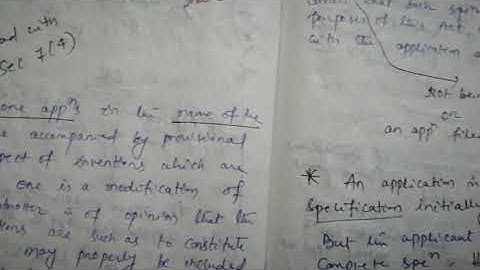 ad with
Sec 7(4)
one appns in the name of the
accompanied by provisional
pect of inventions which are
one is a modification of
ntroller is of opinion that the
ions are such as to constitute
may properly be included
purposes of this Act,
with the application
Not be
or
an appn file
* An application
Specification initially
But the applicant
Complete specn.